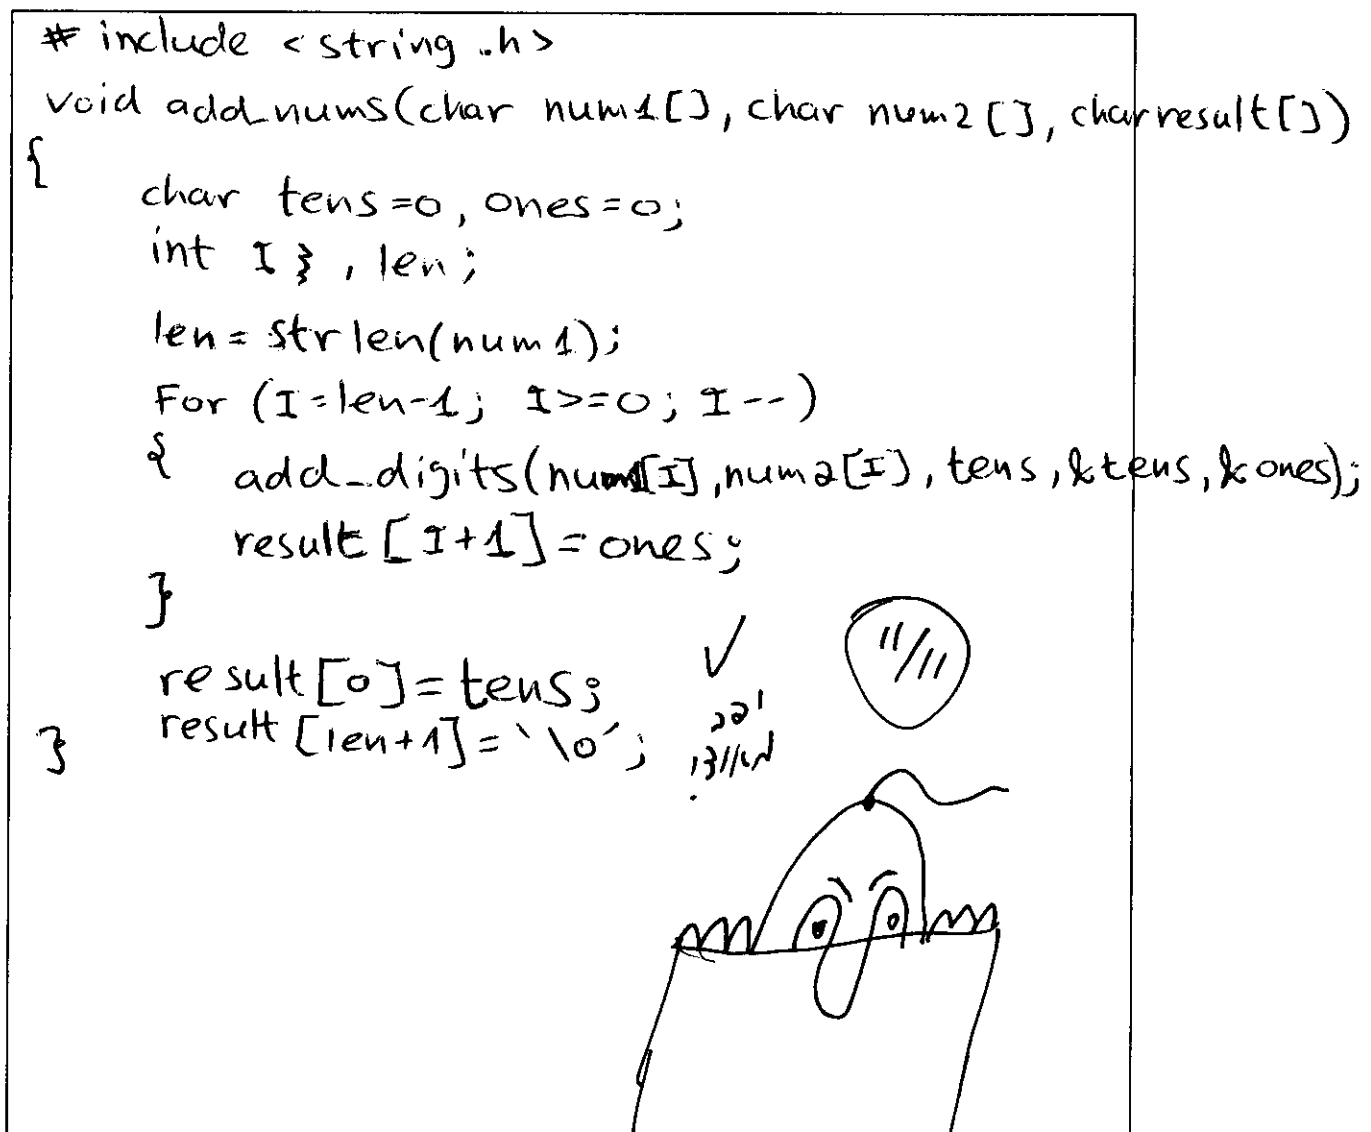 # include <string.h>
void add_nums(char num1[], char num2[], char result[])
{
char tens=0, ones=0;
int I } , len;
len = strlen(num1);
For (I=len-1; I>=0; I--)
{ add_digits(num1[I], num2[I], tens, &tens, &ones);
result [I+1] = ones;
}
result[0] = tens;
result [len+1] = '\0';
}
11/11